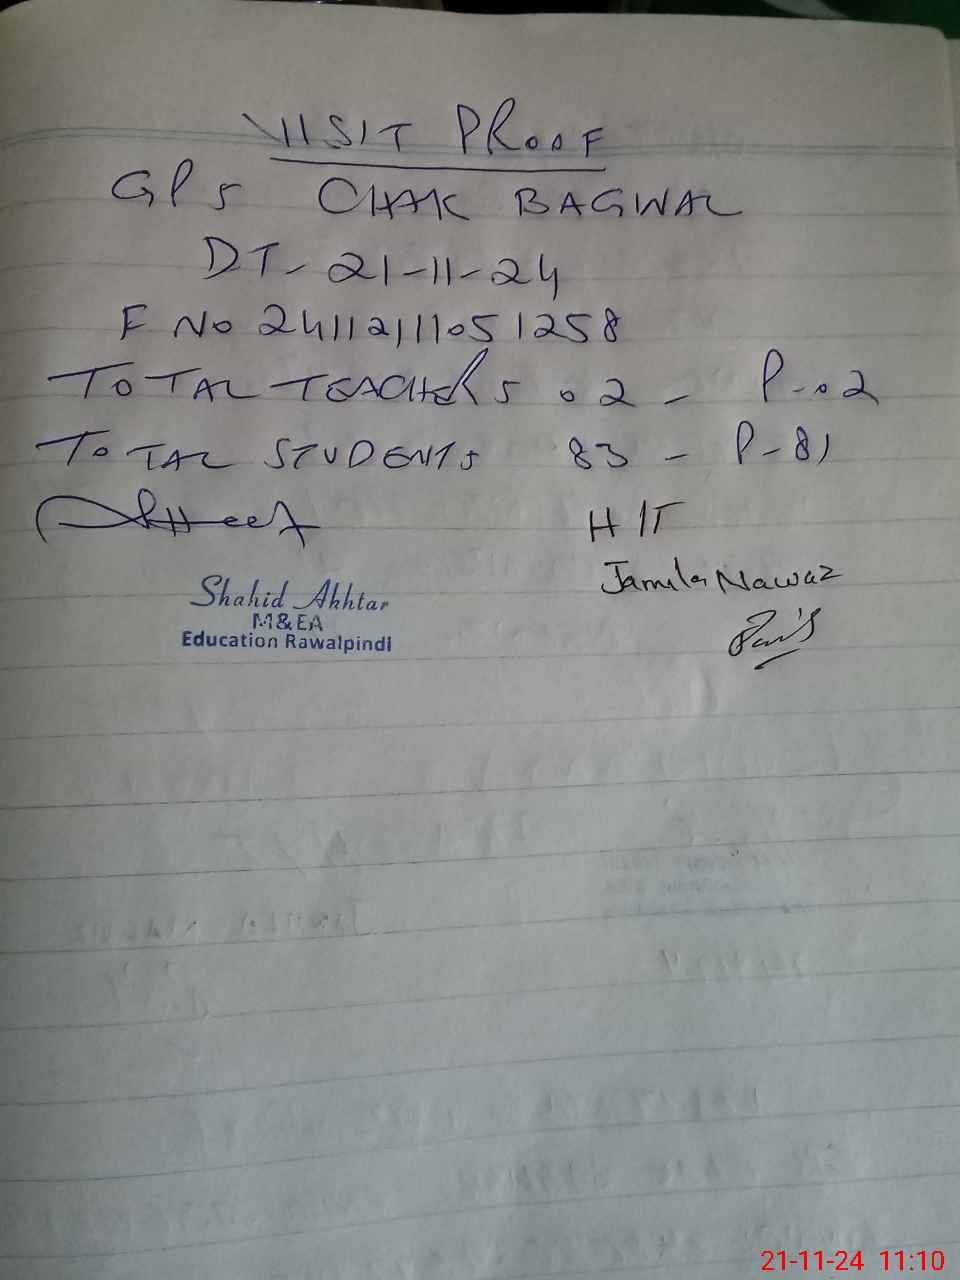 VISIT PROOF
GPS CHAK BAGWAL
DT- 21-11-24
F NO 24112111051258
TOTAL TEACHERS 02 - P-02
TOTAL STUDENTS 83 - P-81
H/T
Jamila Nawaz
Shahid Akhtar
M&EA
Education Rawalpindi
21-11-24 11:10